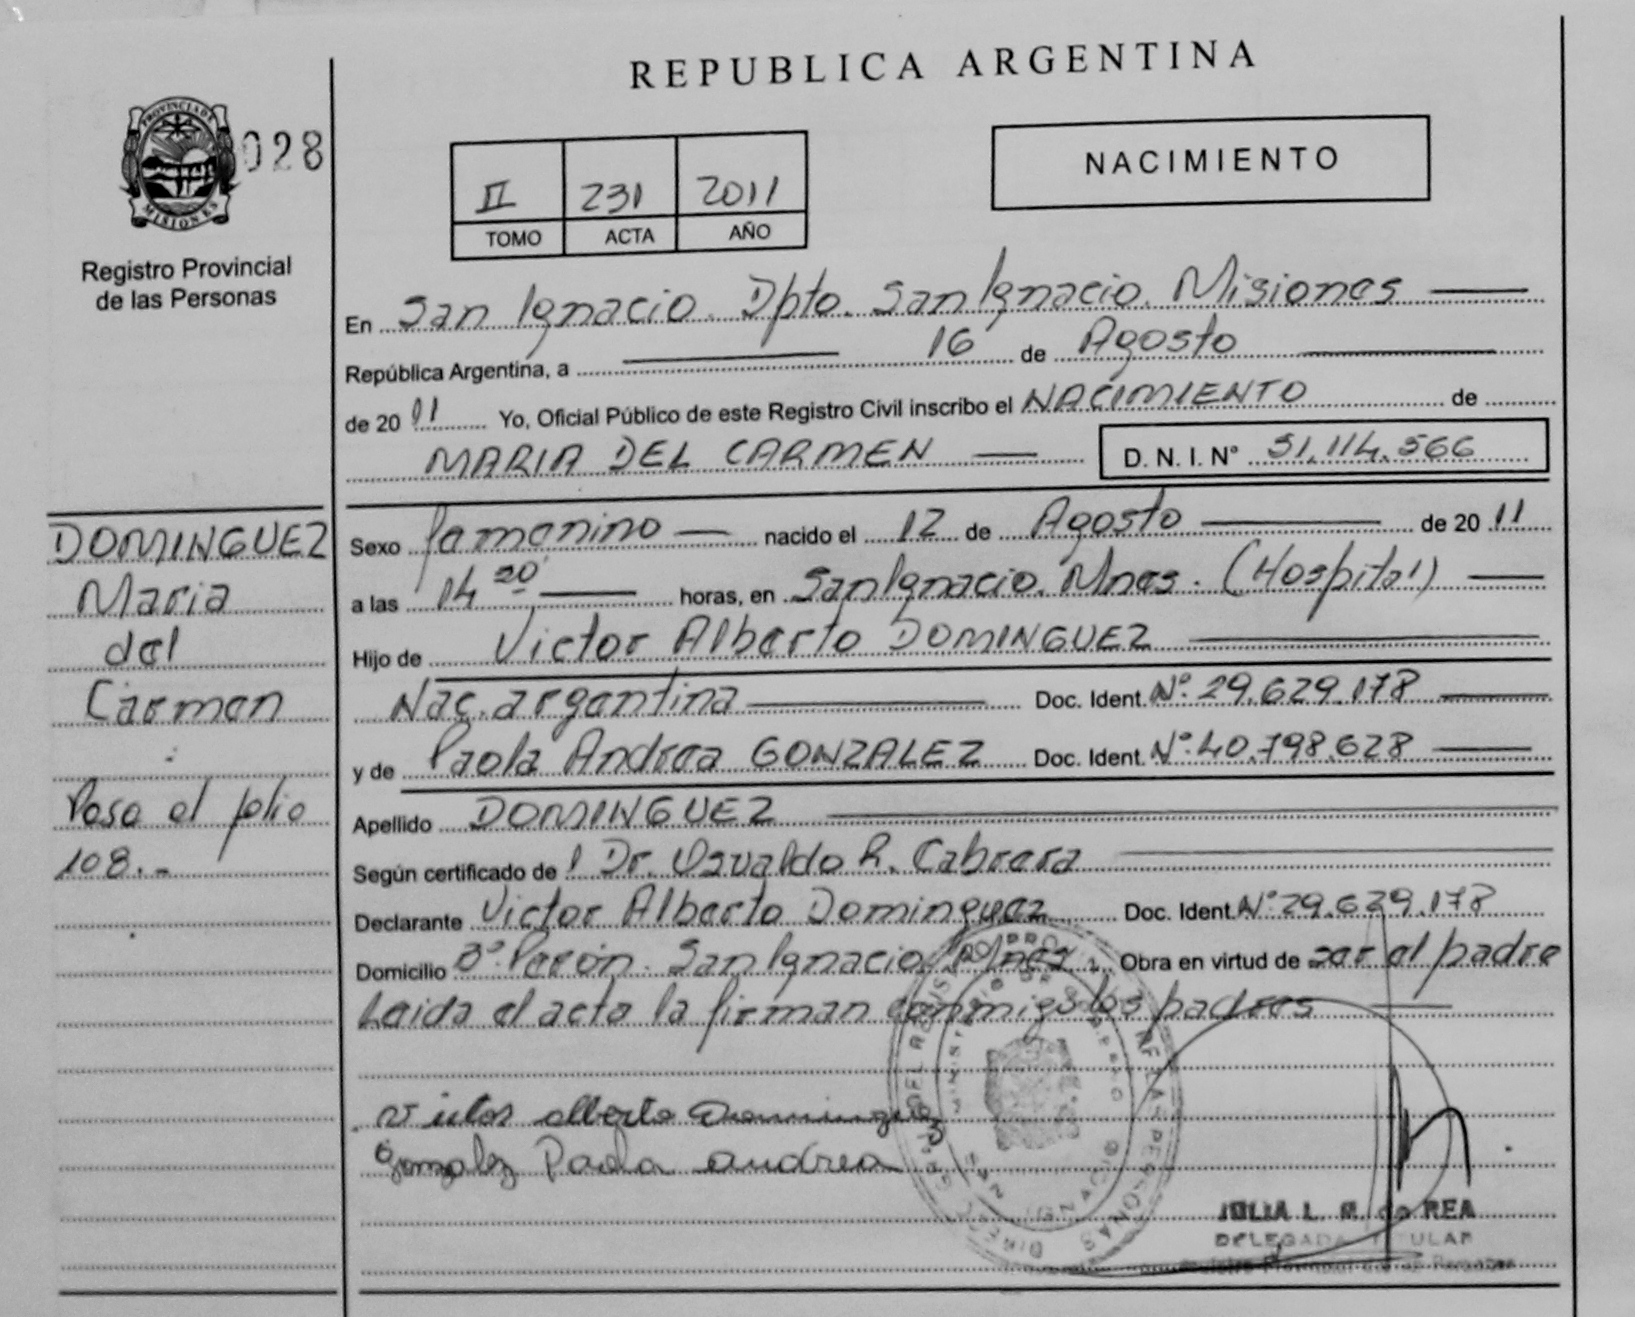 REPUBLICA ARGENTINA
PROVINCIA DE
MISIONES
028
Registro Provincial
de las Personas
II 231 2011
TOMO ACTA AÑO
NACIMIENTO
En San Ignacio. Dpto. San Ignacio. Misiones
República Argentina, a 16 de Agosto
de 2011 Yo, Oficial Público de este Registro Civil inscribo el NACIMIENTO de
MARIA DEL CARMEN D. N. I. N° 51.114.566
DOMINGUEZ
Maria
del
Carmen
Pasa al folio
108.-
Sexo femenino nacido el 12 de Agosto de 2011
a las 14 20 horas, en San Ignacio. Mnes. (Hospital)
Hijo de Victor Alberto DOMINGUEZ
Nac. argentina Doc. Ident. N°. 29.629.178
y de Paola Andrea GONZALEZ Doc. Ident. N°. 40.798.628
Apellido DOMINGUEZ
Según certificado de l Dr. Osvaldo R. Cabrera
Declarante Victor Alberto Dominguez Doc. Ident. N° 29.629.178
Domicilio B° Perón. San Ignacio Mnes. Obra en virtud de ser el padre
Leida el acta la firman conmigo los padres
Victor alberto Dominguez
Gonzalez Paola andrea
JULIA L. R. de REA
DELEGADA TITULAR